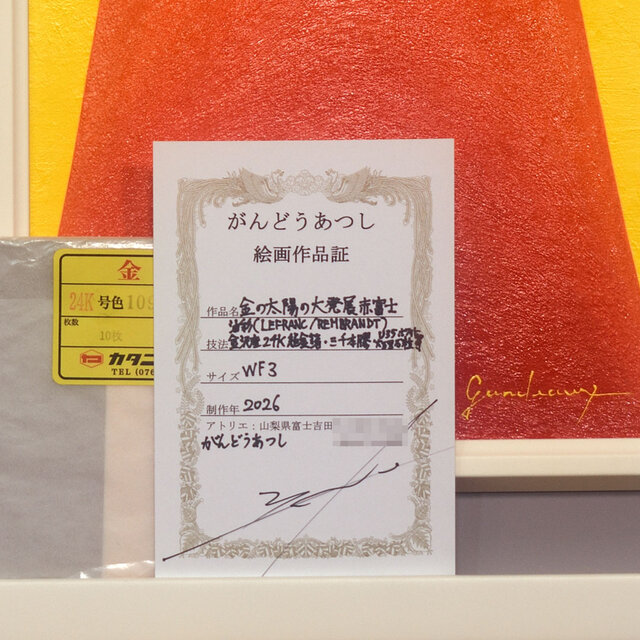 がんどうあつし
絵画作品証
作品名 金の太陽の大発展赤富士
油彩(LEFRANC/REMBRANDT)
技法 金沢産24K純金箔・三千本膠
サイズ WF3
制作年 2026
アトリエ:山梨県富士吉田
がんどうあつし
金
24K 号色 109
枚数
10枚
カタニ
TEL (076